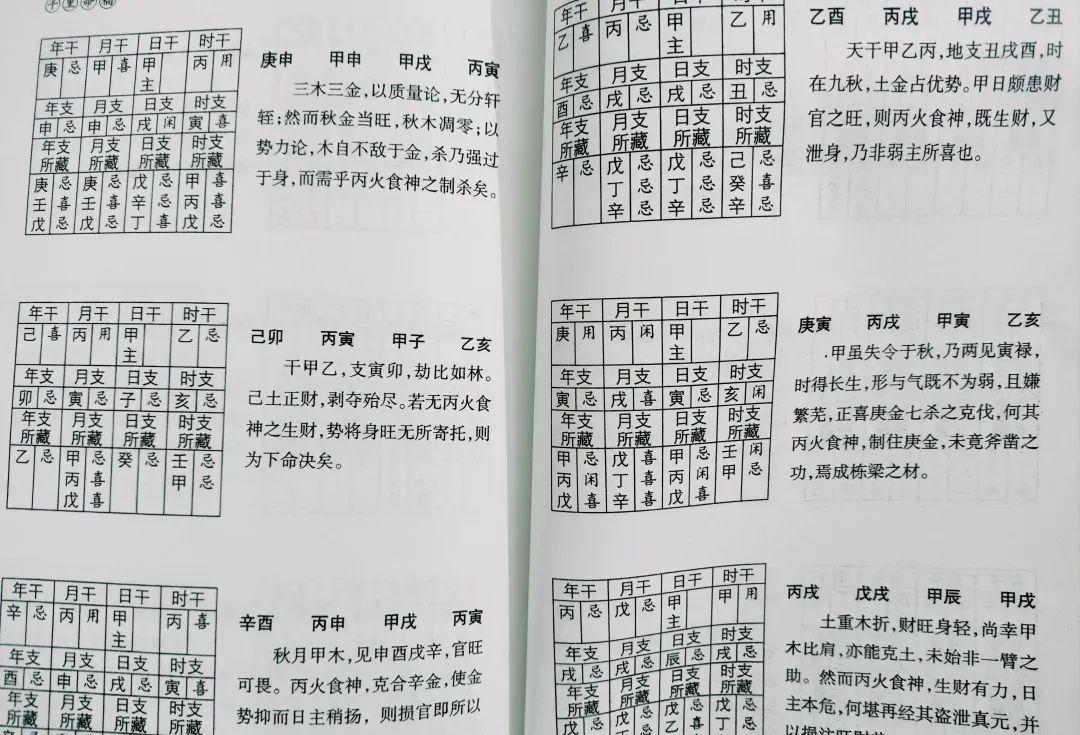 千里命稿
年干 月干 日干 时干
庚 忌 甲 喜 甲 丙 用
主
年支 月支 日支 时支
申 忌 申 忌 戌 闲 寅 喜
年支 月支 日支 时支
所藏 所藏 所藏 所藏
庚 忌 庚 忌 戊 忌 甲 喜
壬 喜 壬 喜 辛 忌 丙 喜
戊 忌 戊 忌 丁 喜 戊 忌
庚申 甲申 甲戌 丙寅
三木三金，以质量论，无分轩
轾；然而秋金当旺，秋木凋零；以
势力论，木自不敌于金，杀乃强过
于身，而需乎丙火食神之制杀矣。
年干 月干 日干 时干
己 喜 丙 用 甲 乙 忌
主
年支 月支 日支 时支
卯 忌 寅 忌 子 忌 亥 忌
年支 月支 日支 时支
所藏 所藏 所藏 所藏
乙 忌 甲 忌 癸 忌 壬 忌
丙 喜 甲 忌
戊 喜
己卯 丙寅 甲子 乙亥
干甲乙，支寅卯，劫比如林。
己土正财，剥夺殆尽。若无丙火食
神之生财，势将身旺无所寄托，则
为下命决矣。
年干 月干 日干 时干
辛 忌 丙 用 甲 丙 喜
主
年支 月支 日支 时支
酉 忌 申 忌 戌 忌 寅 喜
年支 月支 日支 时支
所藏 所藏 所藏 所藏
辛酉 丙申 甲戌 丙寅
秋月甲木，见申酉戌辛，官旺
可畏。丙火食神，克合辛金，使金
势抑而日主稍扬，则损官即所以
年干 月干 日干 时干
乙 喜 丙 忌 甲 乙 用
主
年支 月支 日支 时支
酉 忌 戌 忌 戌 忌 丑 忌
年支 月支 日支 时支
所藏 所藏 所藏 所藏
辛 忌 戊 忌 戊 忌 己 忌
丁 忌 丁 忌 癸 喜
辛 忌 辛 忌 辛 忌
乙酉 丙戌 甲戌 乙丑
天干甲乙丙，地支丑戌酉，时
在九秋，土金占优势。甲日颇患财
官之旺，则丙火食神，既生财，又
泄身，乃非弱主所喜也。
年干 月干 日干 时干
庚 用 丙 闲 甲 乙 忌
主
年支 月支 日支 时支
寅 忌 戌 喜 寅 忌 亥 闲
年支 月支 日支 时支
所藏 所藏 所藏 所藏
甲 忌 戊 喜 甲 忌 壬 闲
丙 闲 丁 喜 丙 闲 甲 忌
戊 喜 辛 喜 戊 喜
庚寅 丙戌 甲寅 乙亥
甲虽失令于秋，乃两见寅禄，
时得长生，形与气既不为弱，且嫌
繁芜，正喜庚金七杀之克伐，何其
丙火食神，制住庚金，未竟斧凿之
功，焉成栋梁之材。
年干 月干 日干 时干
丙 忌 戊 忌 甲 甲 用
主
年支 月支 日支 时支
戌 忌 戌 忌 辰 忌 戌 忌
年支 月支 日支 时支
所藏 所藏 所藏 所藏
戊 忌 戊 忌 戊 忌 戊 忌
乙 喜 丁 忌
丙戌 戊戌 甲辰 甲戌
土重木折，财旺身轻，尚幸甲
木比肩，亦能克土，未始非一臂之
助。然而丙火食神，生财有力，日
主本危，何堪再经其盗泄真元，并